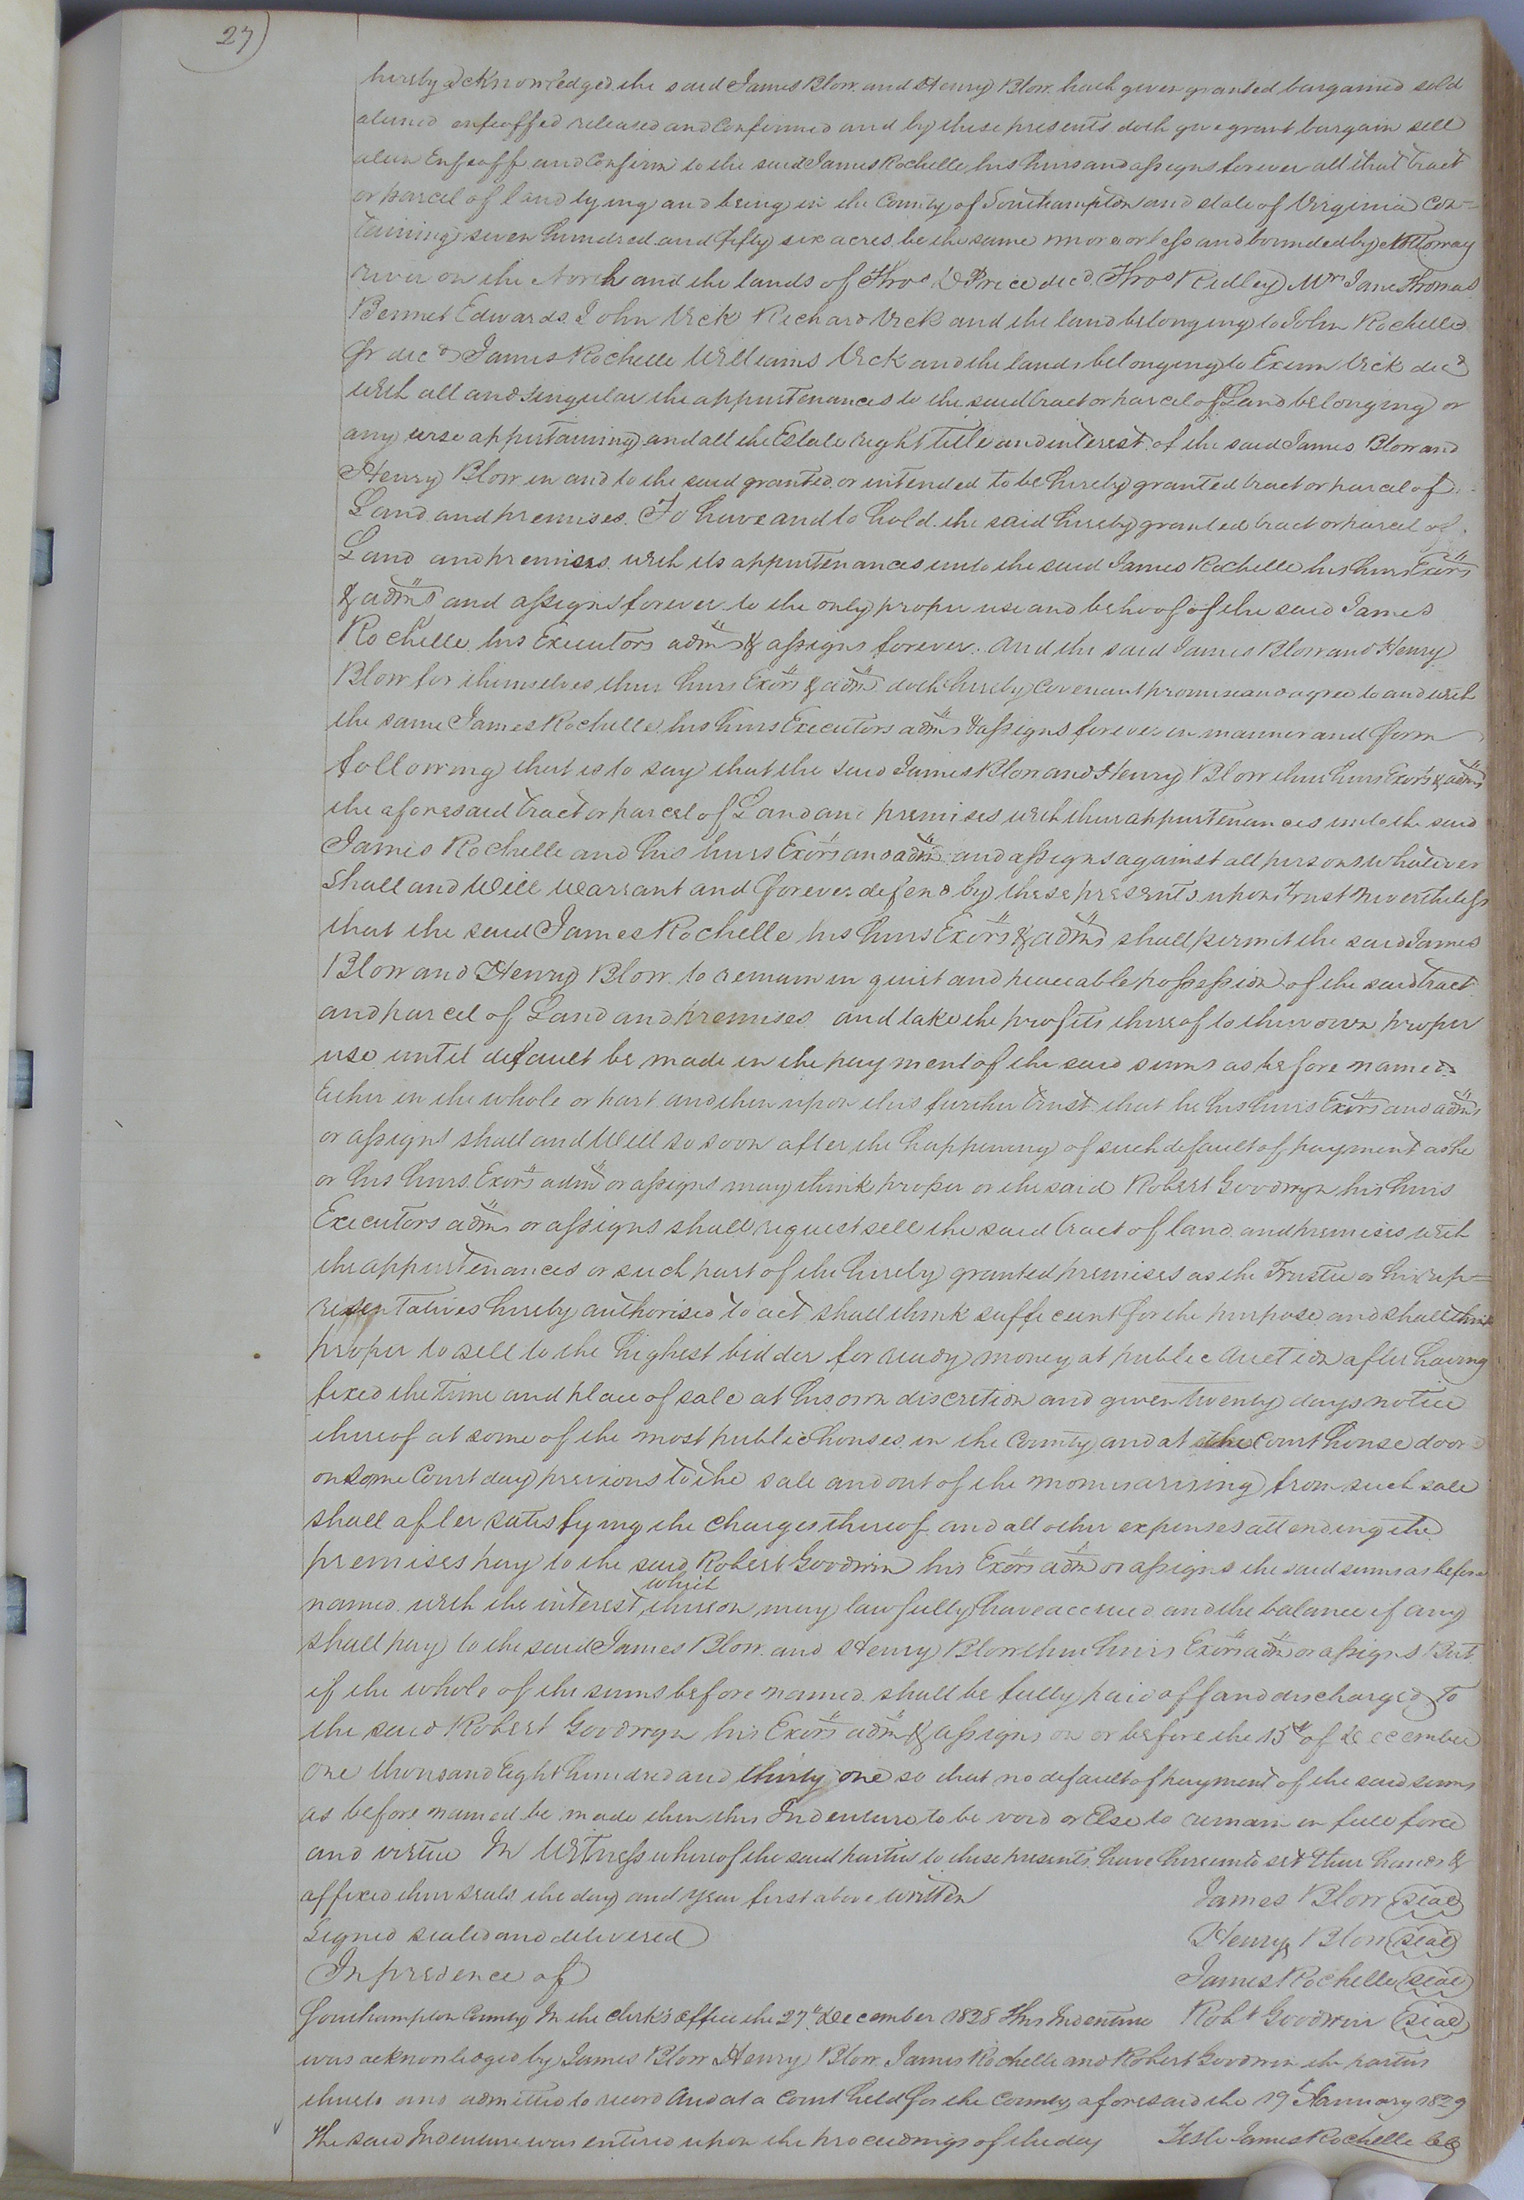 27)
hereby acknowledged the said James Blow and Henry Blow hath given granted bargained sold
aliened enfeoffed released and confirmed and by these presents doth give grant bargain sell
alien Enfeoff and Confirm to the said James Rochelle his heirs and assigns forever all that tract
or parcel of land lying and being in the County of Southampton and state of Virginia Con=
taining seven hundred and fifty six acres be the same more or less and bounded by Nottoway
river on the North and the lands of Thos D Price decd. Thos Ridley Mrs Jane Thomas
Bennet Edwards John Vick Richard Vick and the land belonging to John Rochelle
Jr decd James Rochelle Williams Vick and the lands belonging to Exum Vick decd
with all and singular the appurtenances to the said tract or parcel of Land belonging or
any wise appertaining and all the Estate right title and interest of the said James Blow and
Henry Blow in and to the said granted or intended to be hereby granted tract or parcel of
Land and premises. To have and to hold the said hereby granted tract or parcel of
Land and premises with its appurtenances unto the said James Rochelle his heirs Exors
& adms and assigns forever to the only proper use and behoof of the said James
Rochelle his Executors adms & assigns forever. And the said James Blow and Henry
Blow for themselves their heirs Exors & adms doth hereby Covenant promise and agree to and with
the same James Rochelle his heirs Executors adms & assigns forever in manner and form
following that is to say that the said James Blow and Henry Blow their heirs Exors & adms
the aforesaid tract or parcel of Land and premises with their appurtenances unto the said
James Rochelle and his heirs Exors and adms and assigns against all persons whatever
shall and Will warrant and forever defend by these presents upon trust nevertheless
that the said James Rochelle his heirs Exors & adms shall permit the said James
Blow and Henry Blow to remain in quiet and peaceable possession of the said tract
and parcel of Land and premises and take the profits thereof to their own proper
use until default be made in the payment of the said sums as before named
Either in the whole or part and then upon this further trust that he his heirs Exors and adms
or assigns shall and Will so soon after the happening of such default of payment as he
or his heirs Exors adms or assigns may think proper or the said Robert Goodwyn his heirs
Executors adms or assigns shall request sell the said tract of land and premises with
the appurtenances or such part of the hereby granted premises as the Trustee or his rep=
resentatives hereby authorised to act shall think sufficient for the purpose and shall think
proper to sell to the highest bidder for ready money at public auction after having
fixed the time and place of sale at his own discretion and given twenty days notice
thereof at some of the most public houses in the County and at the Court house door
on some Court day previous to the sale and out of the monies arising from such sale
shall after satisfying the charges thereof and all other expenses attending the
premises pay to the said Robert Goodwin his Exors adm or assigns the said sums as before
named with the interest which thereon may lawfully have accrued and the balance if any
shall pay to the said James Blow and Henry Blow their heirs Exors adm or assigns But
if the whole of the sums before named shall be fully paid off and discharged to
the said Robert Goodwyn his Exors adm & assigns on or before the 15th of December
One thousand Eight hundred and thirty one so that no default of payment of the said sums
as before named be made then this Indenture to be void or Else to remain in full force
and virtue In Witness whereof the said parties to these presents have hereunto set their hands &
affixed their seals the day and year first above written James Blow (seal)
Signed sealed and delivered Henry Blow (seal)
In presence of James Rochelle (seal)
Southampton County In the clerk's office the 27th December 1828 This Indenture Robt Goodwin (seal)
was acknowledged by James Blow Henry Blow James Rochelle and Robert Goodwin the parties
thereto and admitted to record And at a Court held for the County aforesaid the 19th January 1829
The said Indenture was entered upon the proceedings of the day Teste James Rochelle